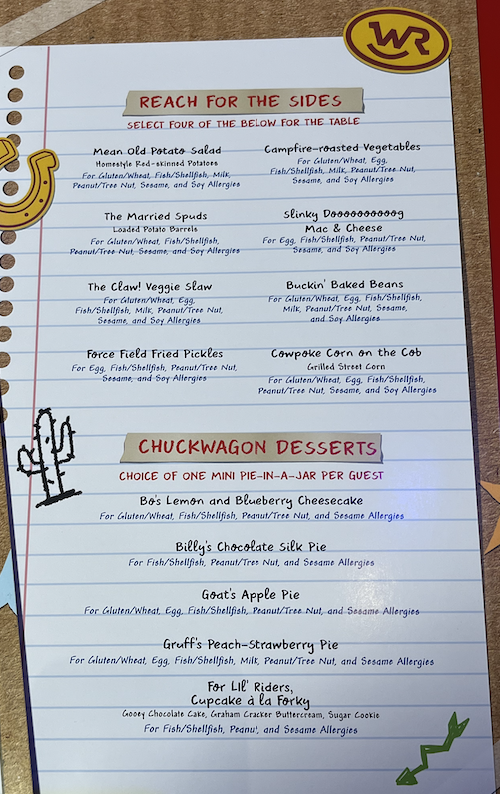 WR
REACH FOR THE SIDES
SELECT FOUR OF THE BELOW FOR THE TABLE
Mean Old Potato Salad
Homestyle Red-skinned Potatoes
For Gluten/Wheat, Fish/Shellfish, Milk,
Peanut/Tree Nut, Sesame, and Soy Allergies
Campfire-roasted Vegetables
For Gluten/Wheat, Egg,
Fish/Shellfish, Milk, Peanut/Tree Nut,
Sesame, and Soy Allergies
The Married Spuds
Loaded Potato Barrels
For Gluten/Wheat, Fish/Shellfish,
Peanut/Tree Nut, Sesame, and Soy Allergies
Slinky Doooooooooog
Mac & Cheese
For Egg, Fish/Shellfish, Peanut/Tree Nut,
Sesame, and Soy Allergies
The Claw! Veggie Slaw
For Gluten/Wheat, Egg,
Fish/Shellfish, Milk, Peanut/Tree Nut,
Sesame, and Soy Allergies
Buckin' Baked Beans
For Gluten/Wheat, Egg, Fish/Shellfish,
Milk, Peanut/Tree Nut, Sesame,
and Soy Allergies
Force Field Fried Pickles
For Egg, Fish/Shellfish, Peanut/Tree Nut,
Sesame, and Soy Allergies
Cowpoke Corn on the Cob
Grilled Street Corn
For Gluten/Wheat, Egg, Fish/Shellfish,
Peanut/Tree Nut, Sesame, and Soy Allergies
CHUCKWAGON DESSERTS
CHOICE OF ONE MINI PIE-IN-A-JAR PER GUEST
Bo's Lemon and Blueberry Cheesecake
For Gluten/Wheat, Fish/Shellfish, Peanut/Tree Nut, and Sesame Allergies
Billy's Chocolate Silk Pie
For Fish/Shellfish, Peanut/Tree Nut, and Sesame Allergies
Goat's Apple Pie
For Gluten/Wheat, Egg, Fish/Shellfish, Peanut/Tree Nut, and Sesame Allergies
Gruff's Peach-Strawberry Pie
For Gluten/Wheat, Egg, Fish/Shellfish, Milk, Peanut/Tree Nut, and Sesame Allergies
For Lil' Riders,
Cupcake à la Forky
Gooey Chocolate Cake, Graham Cracker Buttercream, Sugar Cookie
For Fish/Shellfish, Peanut, and Sesame Allergies